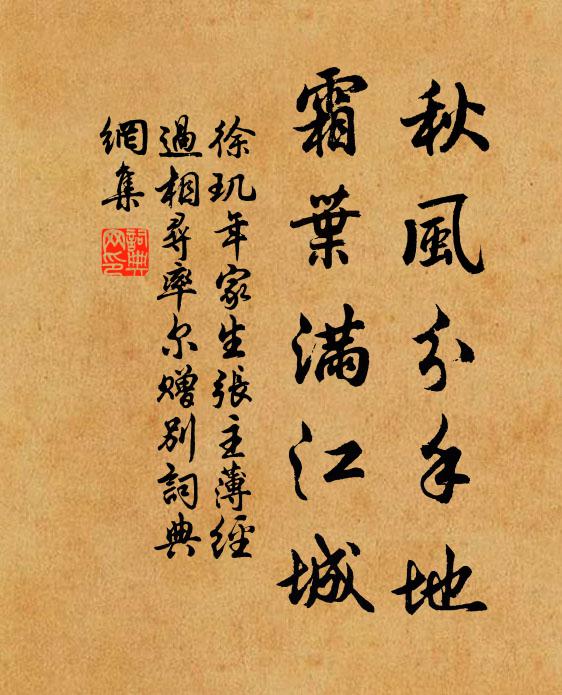 秋風分手地
霜葉滿江城
徐玑年家生張主薄經
過相尋率尔贈别詞典
網集
詞典
网印